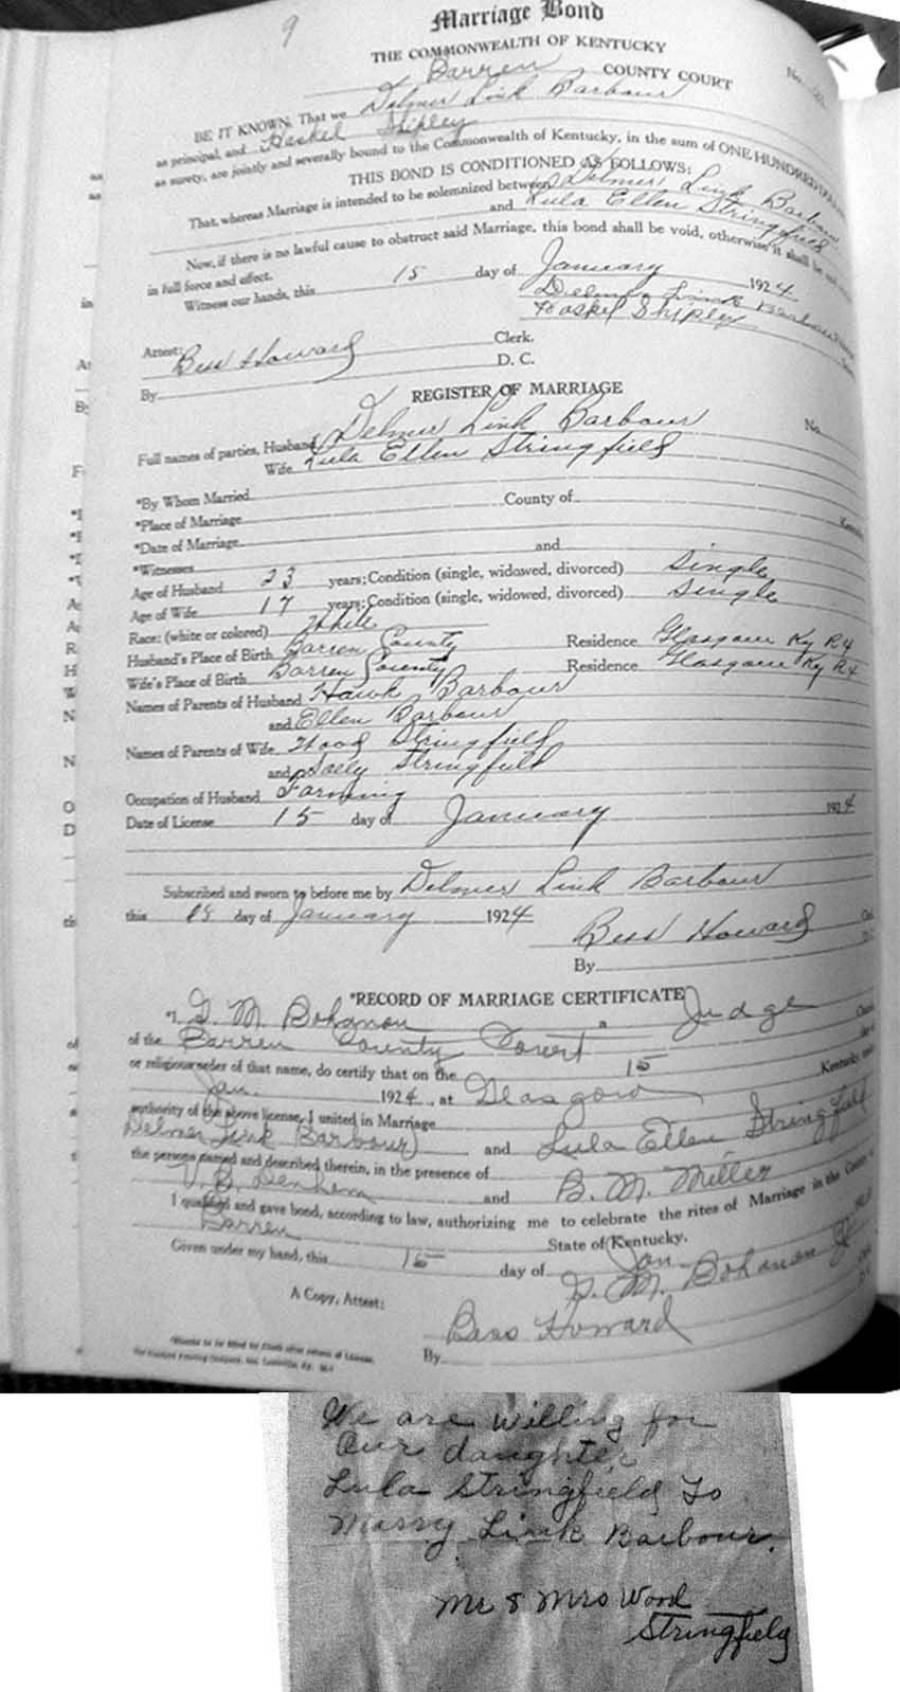 9
Marriage Bond
THE COMMONWEALTH OF KENTUCKY
Barren COUNTY COURT
No.
BE IT KNOWN, That we Delmer Link Barbour
as principal, and Haskel Shipley
as surety, are jointly and severally bound to the Commonwealth of Kentucky, in the sum of ONE HUNDRED
THIS BOND IS CONDITIONED AS FOLLOWS:
That, whereas Marriage is intended to be solemnized between Delmer Link Barbour
and Lula Ellen Stringfield
Now, if there is no lawful cause to obstruct said Marriage, this bond shall be void, otherwise it shall be
in full force and effect.
Witness our hands, this 15 day of January 1924
Delmer Link Barbour
Haskel Shipley
Attest: Bess Howard Clerk.
By D. C.
REGISTER OF MARRIAGE
No.
Full names of parties, Husband Delmer Link Barbour
Wife Lula Ellen Stringfield
*By Whom Married
*Place of Marriage County of
*Date of Marriage
*Witnesses and
Age of Husband 23 years; Condition (single, widowed, divorced) Single
Age of Wife 17 years; Condition (single, widowed, divorced) Single
Race: (white or colored) White
Husband's Place of Birth Barren County Residence Glasgow Ky R4
Wife's Place of Birth Barren County Residence Glasgow Ky R4
Names of Parents of Husband Hawk Barbour
and Ellen Barbour
Names of Parents of Wife Wood Stringfield
and Sally Stringfield
Occupation of Husband Farming
Date of License 15 day of January 1924
Subscribed and sworn to before me by Delmer Link Barbour
this 15 day of January 1924
Bess Howard
By
*RECORD OF MARRIAGE CERTIFICATE
*I, G. M. Bohanon a Judge
of the Barren County Court
or religious order of that name, do certify that on the 15
Jan. 1924, at Glasgow Kentucky
authority of the above license, I united in Marriage
Delmer Link Barbour and Lula Ellen Stringfield
the persons named and described therein, in the presence of
V. B. Denham and B. M. Miller
I qualified and gave bond, according to law, authorizing me to celebrate the rites of Marriage in the County of
Barren State of Kentucky.
Given under my hand, this 15 day of Jan
G. M. Bohanon
A Copy, Attest:
Bess Howard
By
We are willing for
Our daughter
Lula Stringfield to
marry Link Barbour.
Mr & Mrs Wood
Stringfield